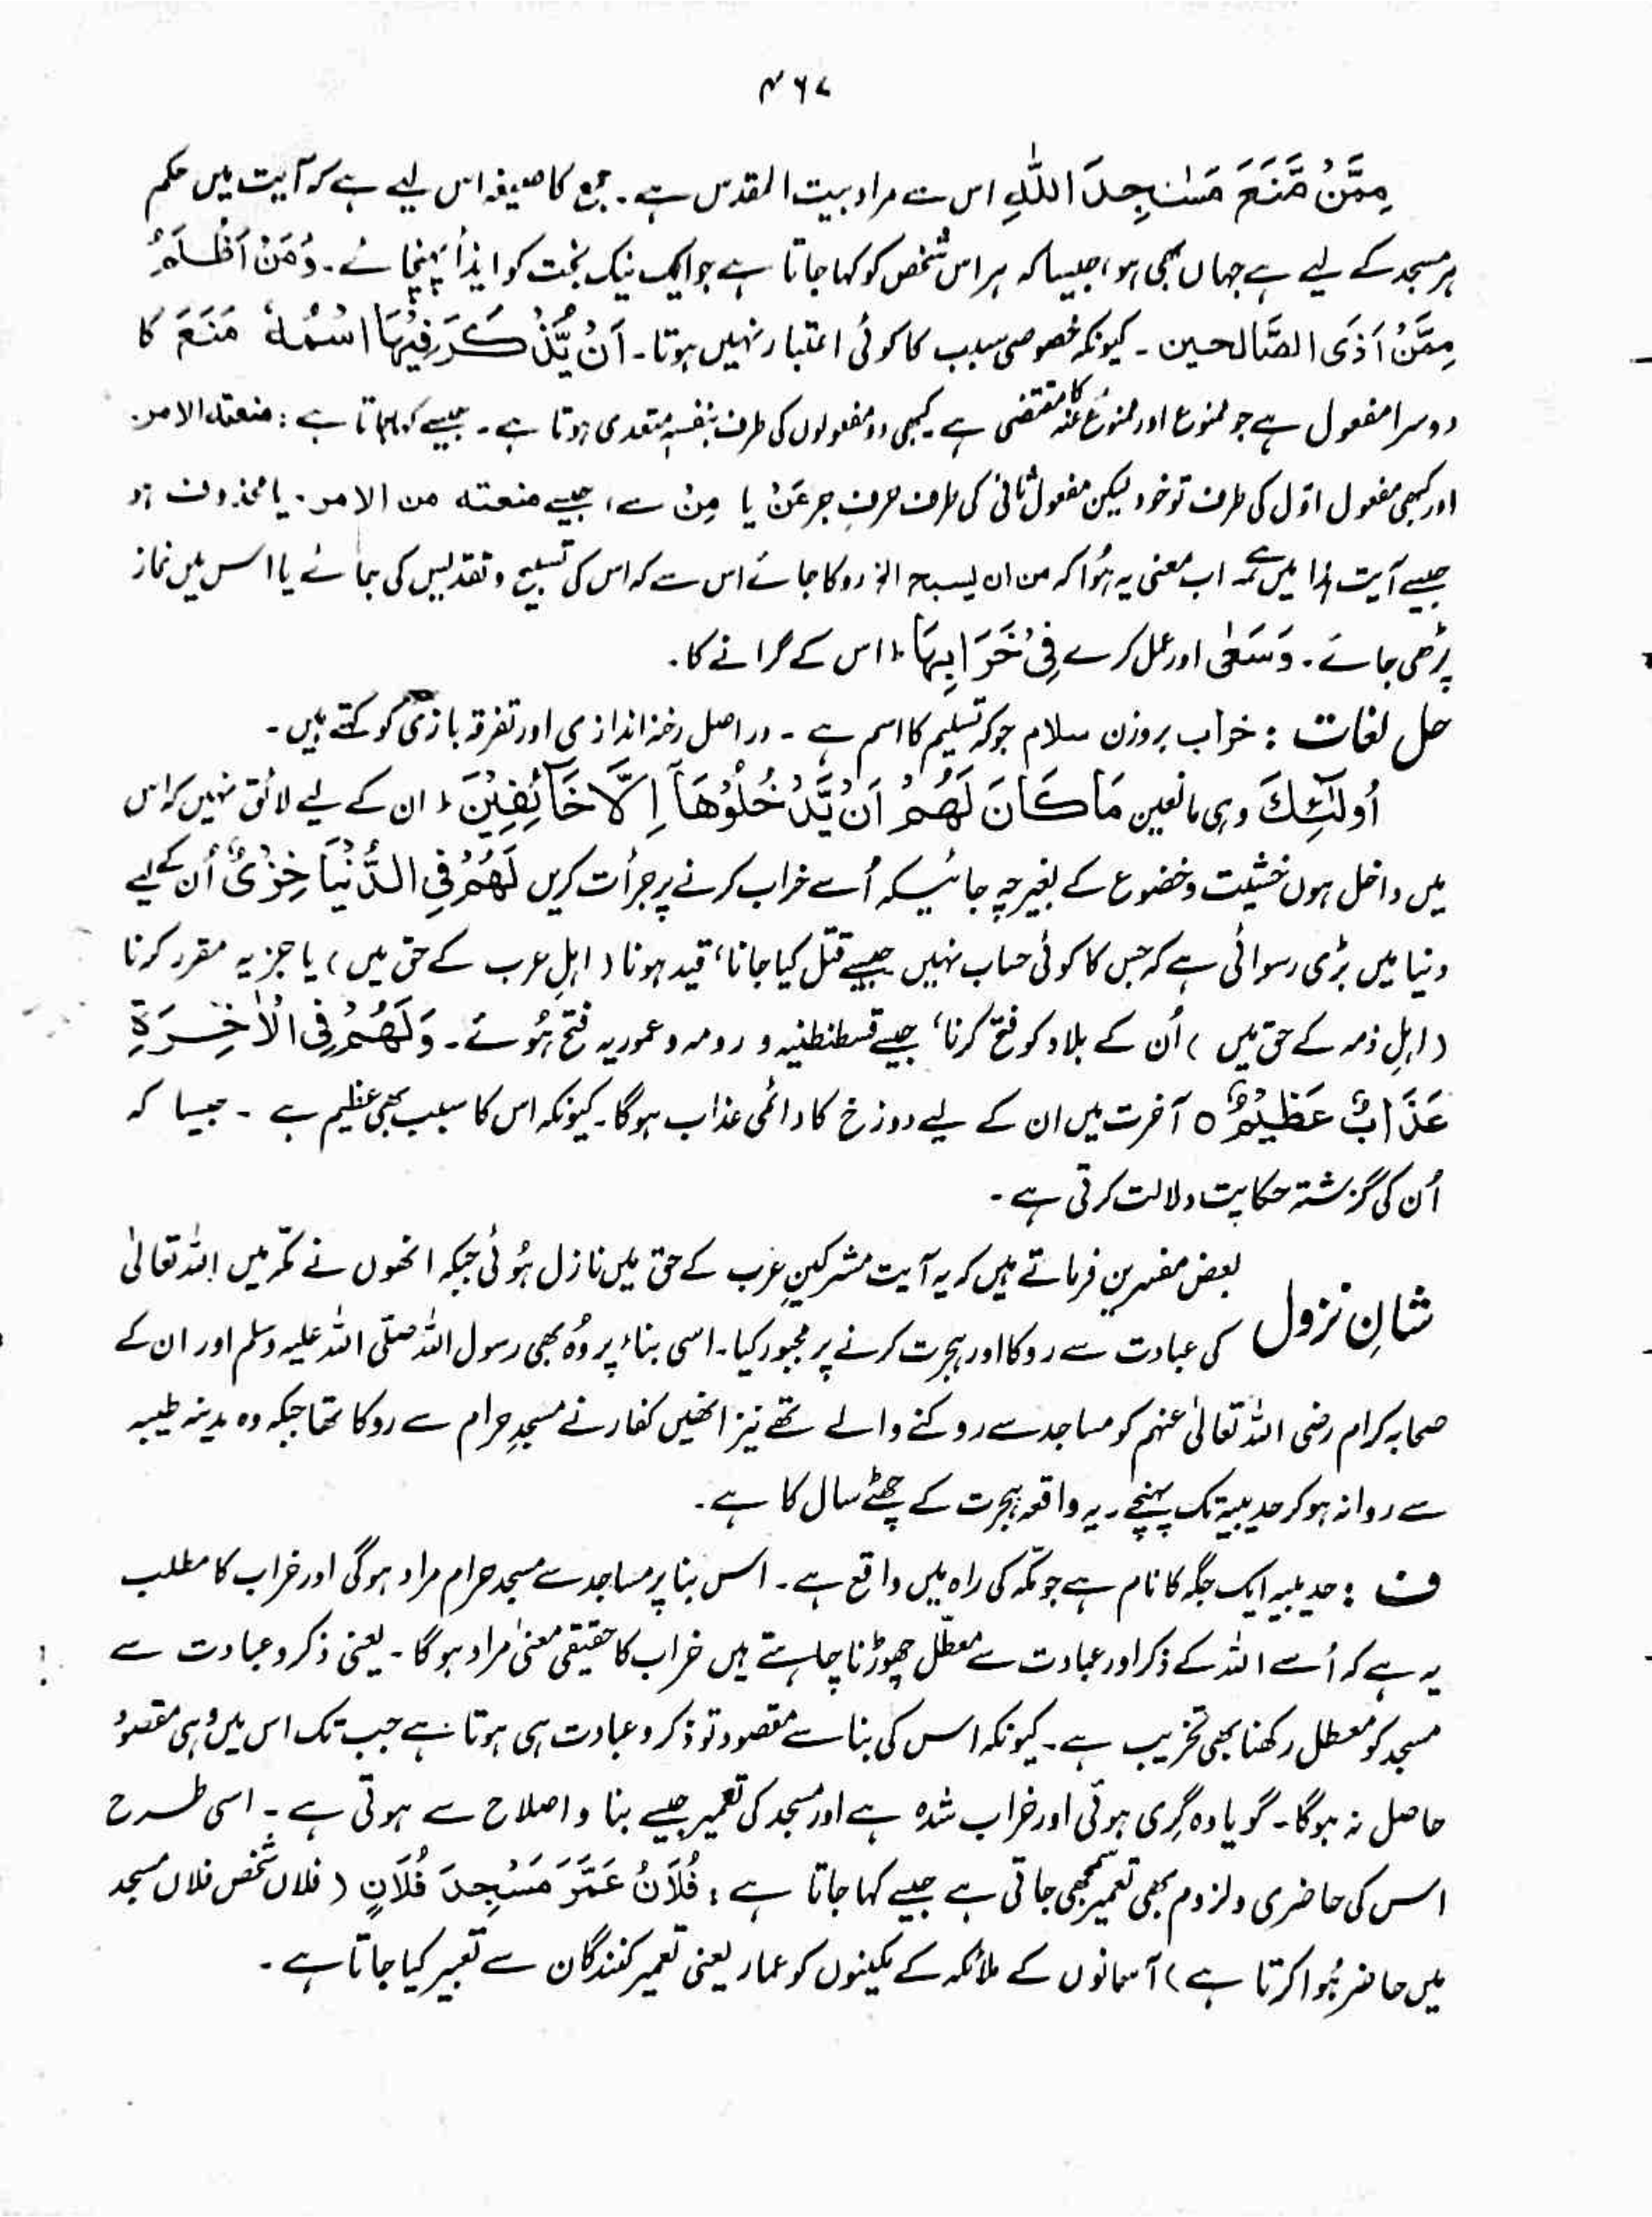 ۴۶۷
مِمَّنْ مَّنَعَ مَسٰجِدَ اللّٰهِ اس سے مراد بیت المقدس ہے۔ جمع کا صیغہ اس لیے ہے کہ آیت میں حکم
ہر مسجد کے لیے ہے جہاں بھی ہو، جیسا کہ ہر اس شخص کو کہا جاتا ہے جو ایک نیک بخت کو ایذأ پہنچائے۔ وَمَنْ اَظْلَمُ
مِمَّنْ اَذَی الصَّالحین۔ کیونکہ خصوصی سبب کا کوئی اعتبار نہیں ہوتا۔ اَنْ يُّذْكَرَ فِيْهَا اسْمُهٗ مَنَعَ کا
دوسرا مفعول ہے جو ممنوع اور ممنوع عنہ کا مقتضی ہے۔ کبھی دو مفعولوں کی طرف بنفسہٖ متعدی ہوتا ہے۔ جیسے کہا جاتا ہے: منعته الامر۔
اور کبھی مفعول اوّل کی طرف تو خود لیکن مفعول ثانی کی طرف حرفِ جر عَنْ یا مِنْ سے، جیسے منعته من الامر۔ یا محذوف ہو
جیسے آیت ہٰذا میں ہے اب معنی یہ ہُوا کہ من ان یسبح الخ روکا جائے اس سے کہ اس کی تسبیح و تقدیس کی جائے یا اس میں نماز
پڑھی جائے۔ وَسَعٰى اور عمل کرے فِىْ خَرَابِهَا ؕ اس کے گرانے کا۔
حل لغات: خراب بروزن سلام جو کہ تسلیم کا اسم ہے۔ دراصل رخنہ اندازی اور تفرقہ بازی کو کہتے ہیں۔
اُولٰٓئِكَ وہی مانعین مَا كَانَ لَهُمْ اَنْ يَّدْخُلُوْهَآ اِلَّا خَآئِفِيْنَ ؕ ان کے لیے لائق نہیں کہ اس
میں داخل ہوں خشیت و خضوع کے بغیر چہ جائیکہ اُسے خراب کرنے پر جرأت کریں لَهُمْ فِى الدُّنْيَا خِزْىٌ اُن کے لیے
دنیا میں بڑی رسوائی ہے کہ جس کا کوئی حساب نہیں جیسے قتل کیا جانا، قید ہونا (اہلِ عرب کے حق میں) یا جزیہ مقرر کرنا
(اہلِ ذمہ کے حق میں) اُن کے بلاد کو فتح کرنا، جیسے قسطنطنیہ و رومہ و عموریہ فتح ہُوئے۔ وَلَهُمْ فِى الْاٰخِرَةِ
عَذَابٌ عَظِيْمٌ ○ آخرت میں ان کے لیے دوزخ کا دائمی عذاب ہوگا۔ کیونکہ اس کا سبب بھی عظیم ہے۔ جیسا کہ
اُن کی گزشتہ حکایت دلالت کرتی ہے۔
شانِ نزول بعض مفسرین فرماتے ہیں کہ یہ آیت مشرکینِ عرب کے حق میں نازل ہُوئی جبکہ انھوں نے مکّہ میں اللہ تعالیٰ
کی عبادت سے روکا اور ہجرت کرنے پر مجبور کیا۔ اسی بناء پر وُہ بھی رسول اللہ صلّی اللہ علیہ وسلم اور ان کے
صحابہ کرام رضی اللہ تعالیٰ عنہم کو مساجد سے روکنے والے تھے نیز انھیں کفار نے مسجدِ حرام سے روکا تھا جبکہ وہ مدینہ طیبہ
سے روانہ ہو کر حدیبیہ تک پہنچے۔ یہ واقعہ ہجرت کے چھٹے سال کا ہے۔
ف: حدیبیہ ایک جگہ کا نام ہے جو مکّہ کی راہ میں واقع ہے۔ اس بنا پر مساجد سے مسجد حرام مراد ہوگی اور خراب کا مطلب
یہ ہے کہ اُسے اللہ کے ذکر اور عبادت سے معطّل چھوڑنا چاہتے ہیں خراب کا حقیقی معنیٰ مراد ہو گا۔ یعنی ذکر و عبادت سے
مسجد کو معطل رکھنا بھی تخریب ہے۔ کیونکہ اس کی بنا سے مقصود تو ذکر و عبادت ہی ہوتا ہے جب تک اس میں وہی مقصود
حاصل نہ ہوگا۔ گویا وہ گِری ہوئی اور خراب شدہ ہے اور مسجد کی تعمیر جیسے بنا و اصلاح سے ہوتی ہے۔ اسی طرح
اس کی حاضری و لزوم بھی تعمیر سمجھی جاتی ہے جیسے کہا جاتا ہے: فُلَانٌ عَمَّرَ مَسْجِدَ فُلَانٍ (فلاں شخص فلاں مسجد
میں حاضر ہُوا کرتا ہے) آسمانوں کے ملائکہ کے مکینوں کو عمار یعنی تعمیر کنندگان سے تعبیر کیا جاتا ہے۔